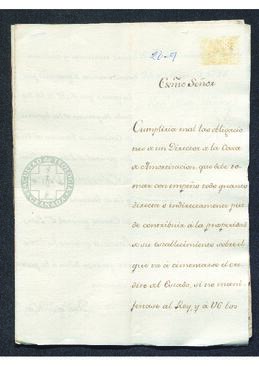 20-9
Exmo Señor
Cumpliria mal las obligacio
nes de un Director de la Caxa
de Amortizacion, que debe to
mar con empeño todo quanto
directa o indirectamente pue
de contribuir a la prosperidad
de su establecimiento sobre el
que va a cimentarse el cre
dito del Estado, si no mani
festase al Rey, y a VE los